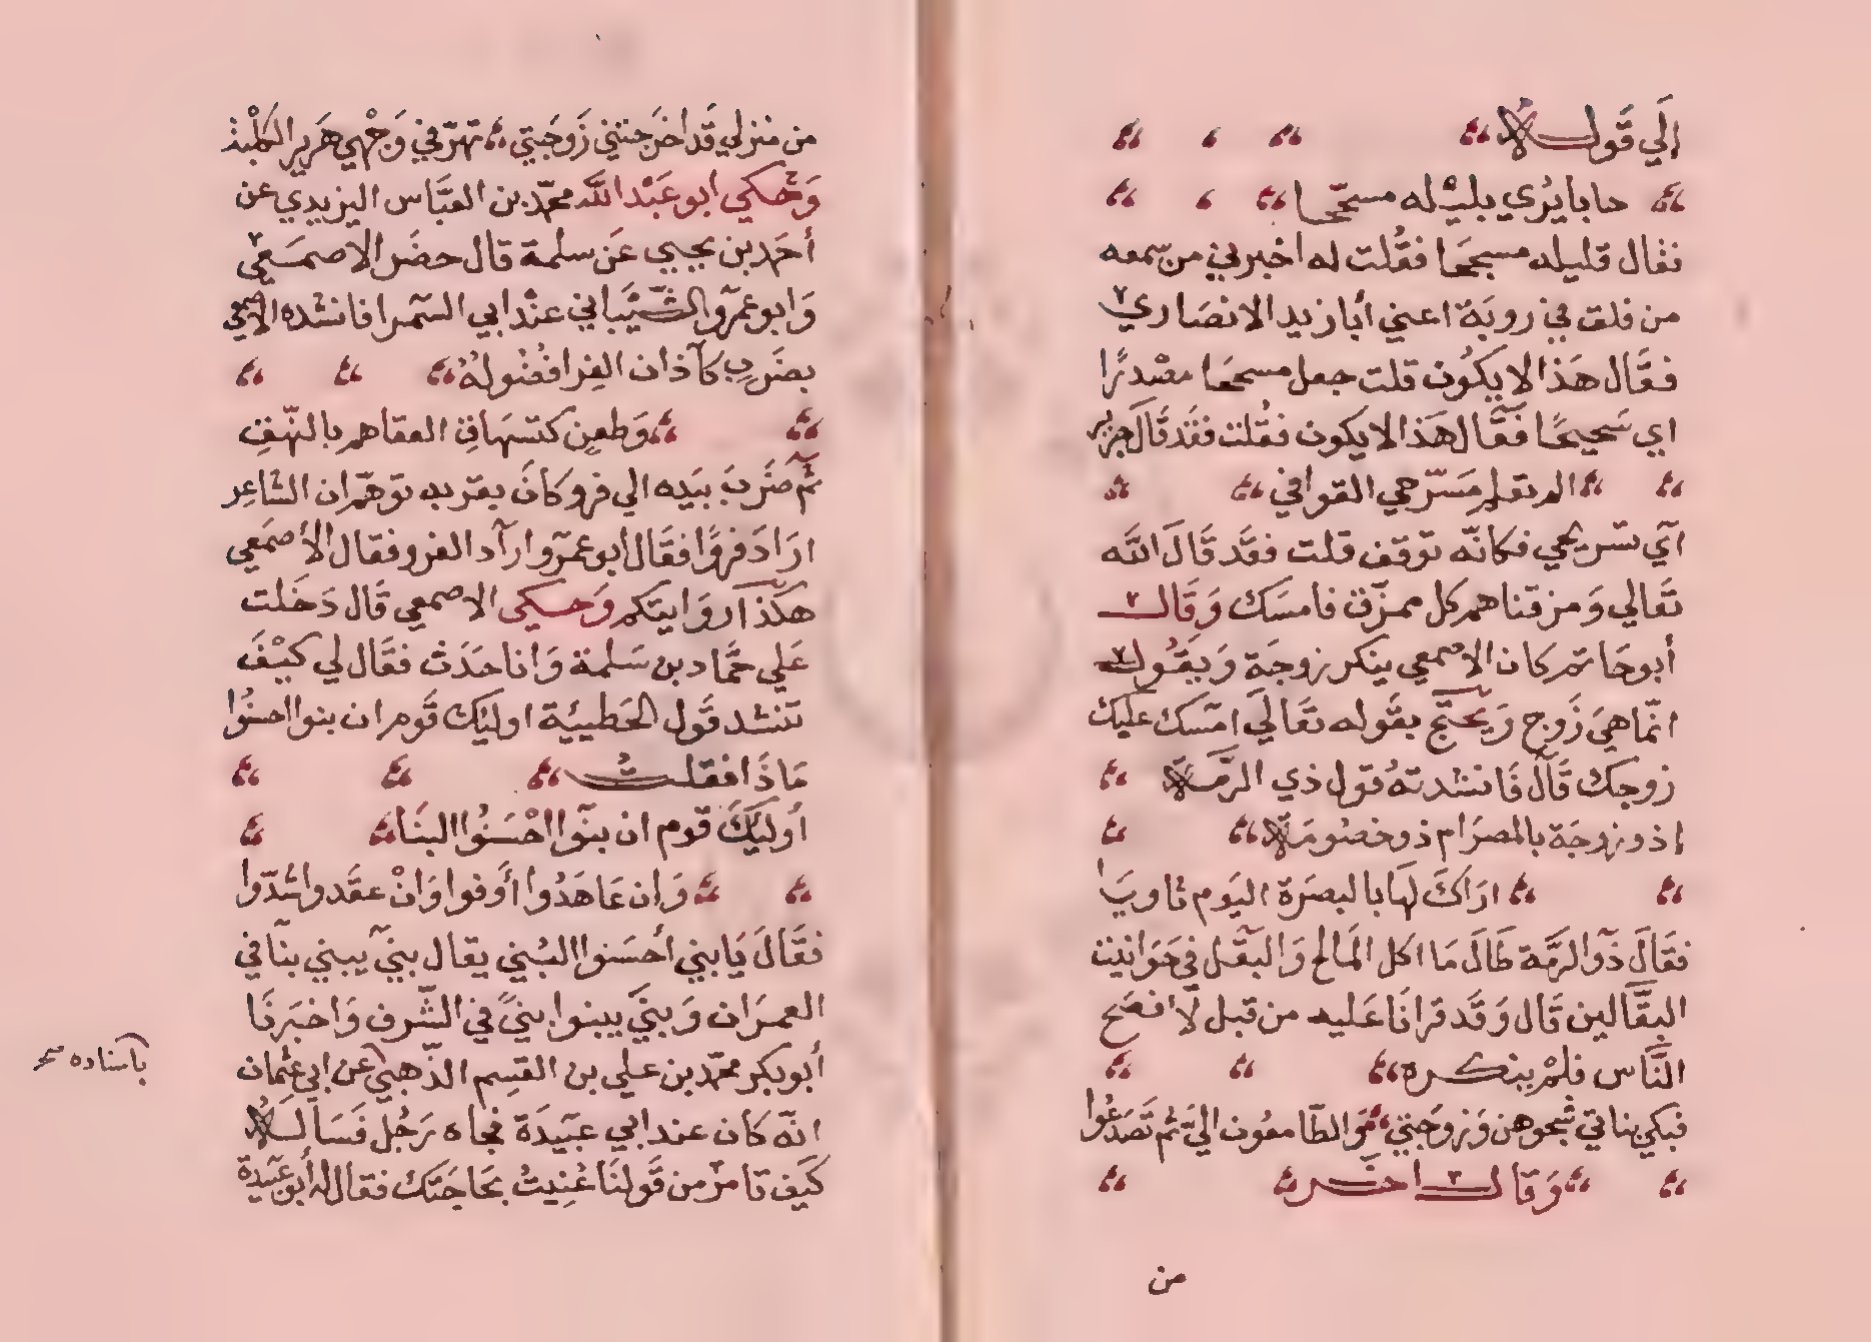 الي قوله
حابا يري بليته مسحجا
فقال قليله مسحجا فقلت له اخبرني من سمعه
من فلق في روبة اعني أبا زيد الانصاري
فقال هذا لا يكون قلت جعل مسحجا مصدرًا
اي تسحيجا فقال هذا لا يكون فقلت فقد قال جرير
الم تعلم مسرحي القوافي
أي تسريحي فكانّه توقف قلت فقد قال الله
تعالي ومزقناهم كل ممزق فامسك وقال
أبو حاتم كان الاصمعي ينكر زوجة ويقول
انّما هي زوج ويحتج بقوله تعالي امسك عليك
زوجك قال فانشدته قول ذي الرمة
اذو زوجة بالمصر ام ذو خصومة
اراك لها بالبصرة اليوم ثاويا
فقال ذو الرمّة طال ما اكل المالح والبقل في حوانيت
البقّالين قال وقد قرانا عليه من قبل لا فصح
النّاس فلم ينكره
فبكي بناتي شجوهن وزوجتي والطامعون اليّ ثم تصدعوا
وقال اخر
من
من منزلي قد اخرجتني زوجتي تهرّ في وجهي هرير الكلبة
وحكي ابو عبد الله محمّد بن العبّاس اليزيدي عن
أحمد بن يحيي عن سلمة قال حضر الاصمعي
وابو عمرو الشّيباني عند ابي السّمرا فانشده الاصمعي
بضرب كآذان الفرا فضوله
وطعن كتشهاق العفا هم بالنهق
ثم ضرب بيده الي فرو كان بقربه توهّم ان الشاعر
اراد فروًا فقال أبو عمرو اراد الفرو فقال الأصمعي
هكذا روايتكم وحكي الاصمعي قال دخلت
علي حمّاد بن سلمة وانا حدث فقال لي كيف
تنشد قول الحطيئة اوليك قوم ان بنوا احسنوا
ماذا فقلت
أوليك قوم ان بنوا احسنوا البنا
وان عاهدوا أوفوا وان عقدوا شدّوا
فقال يا بني أحسنوا البُني يقال بني يبني بنا في
العمران وبني يبنوا بنيً في الشّرف واخبرنا
أبو بكر محمّد بن علي بن القسم الذهبي عن ابي عثمان
باسناده صح
انّه كان عند ابي عبيدة فجاه رجل فساله
كيف تامر من قولنا عُنيت بحاجتك فقال له أبو عبيدة